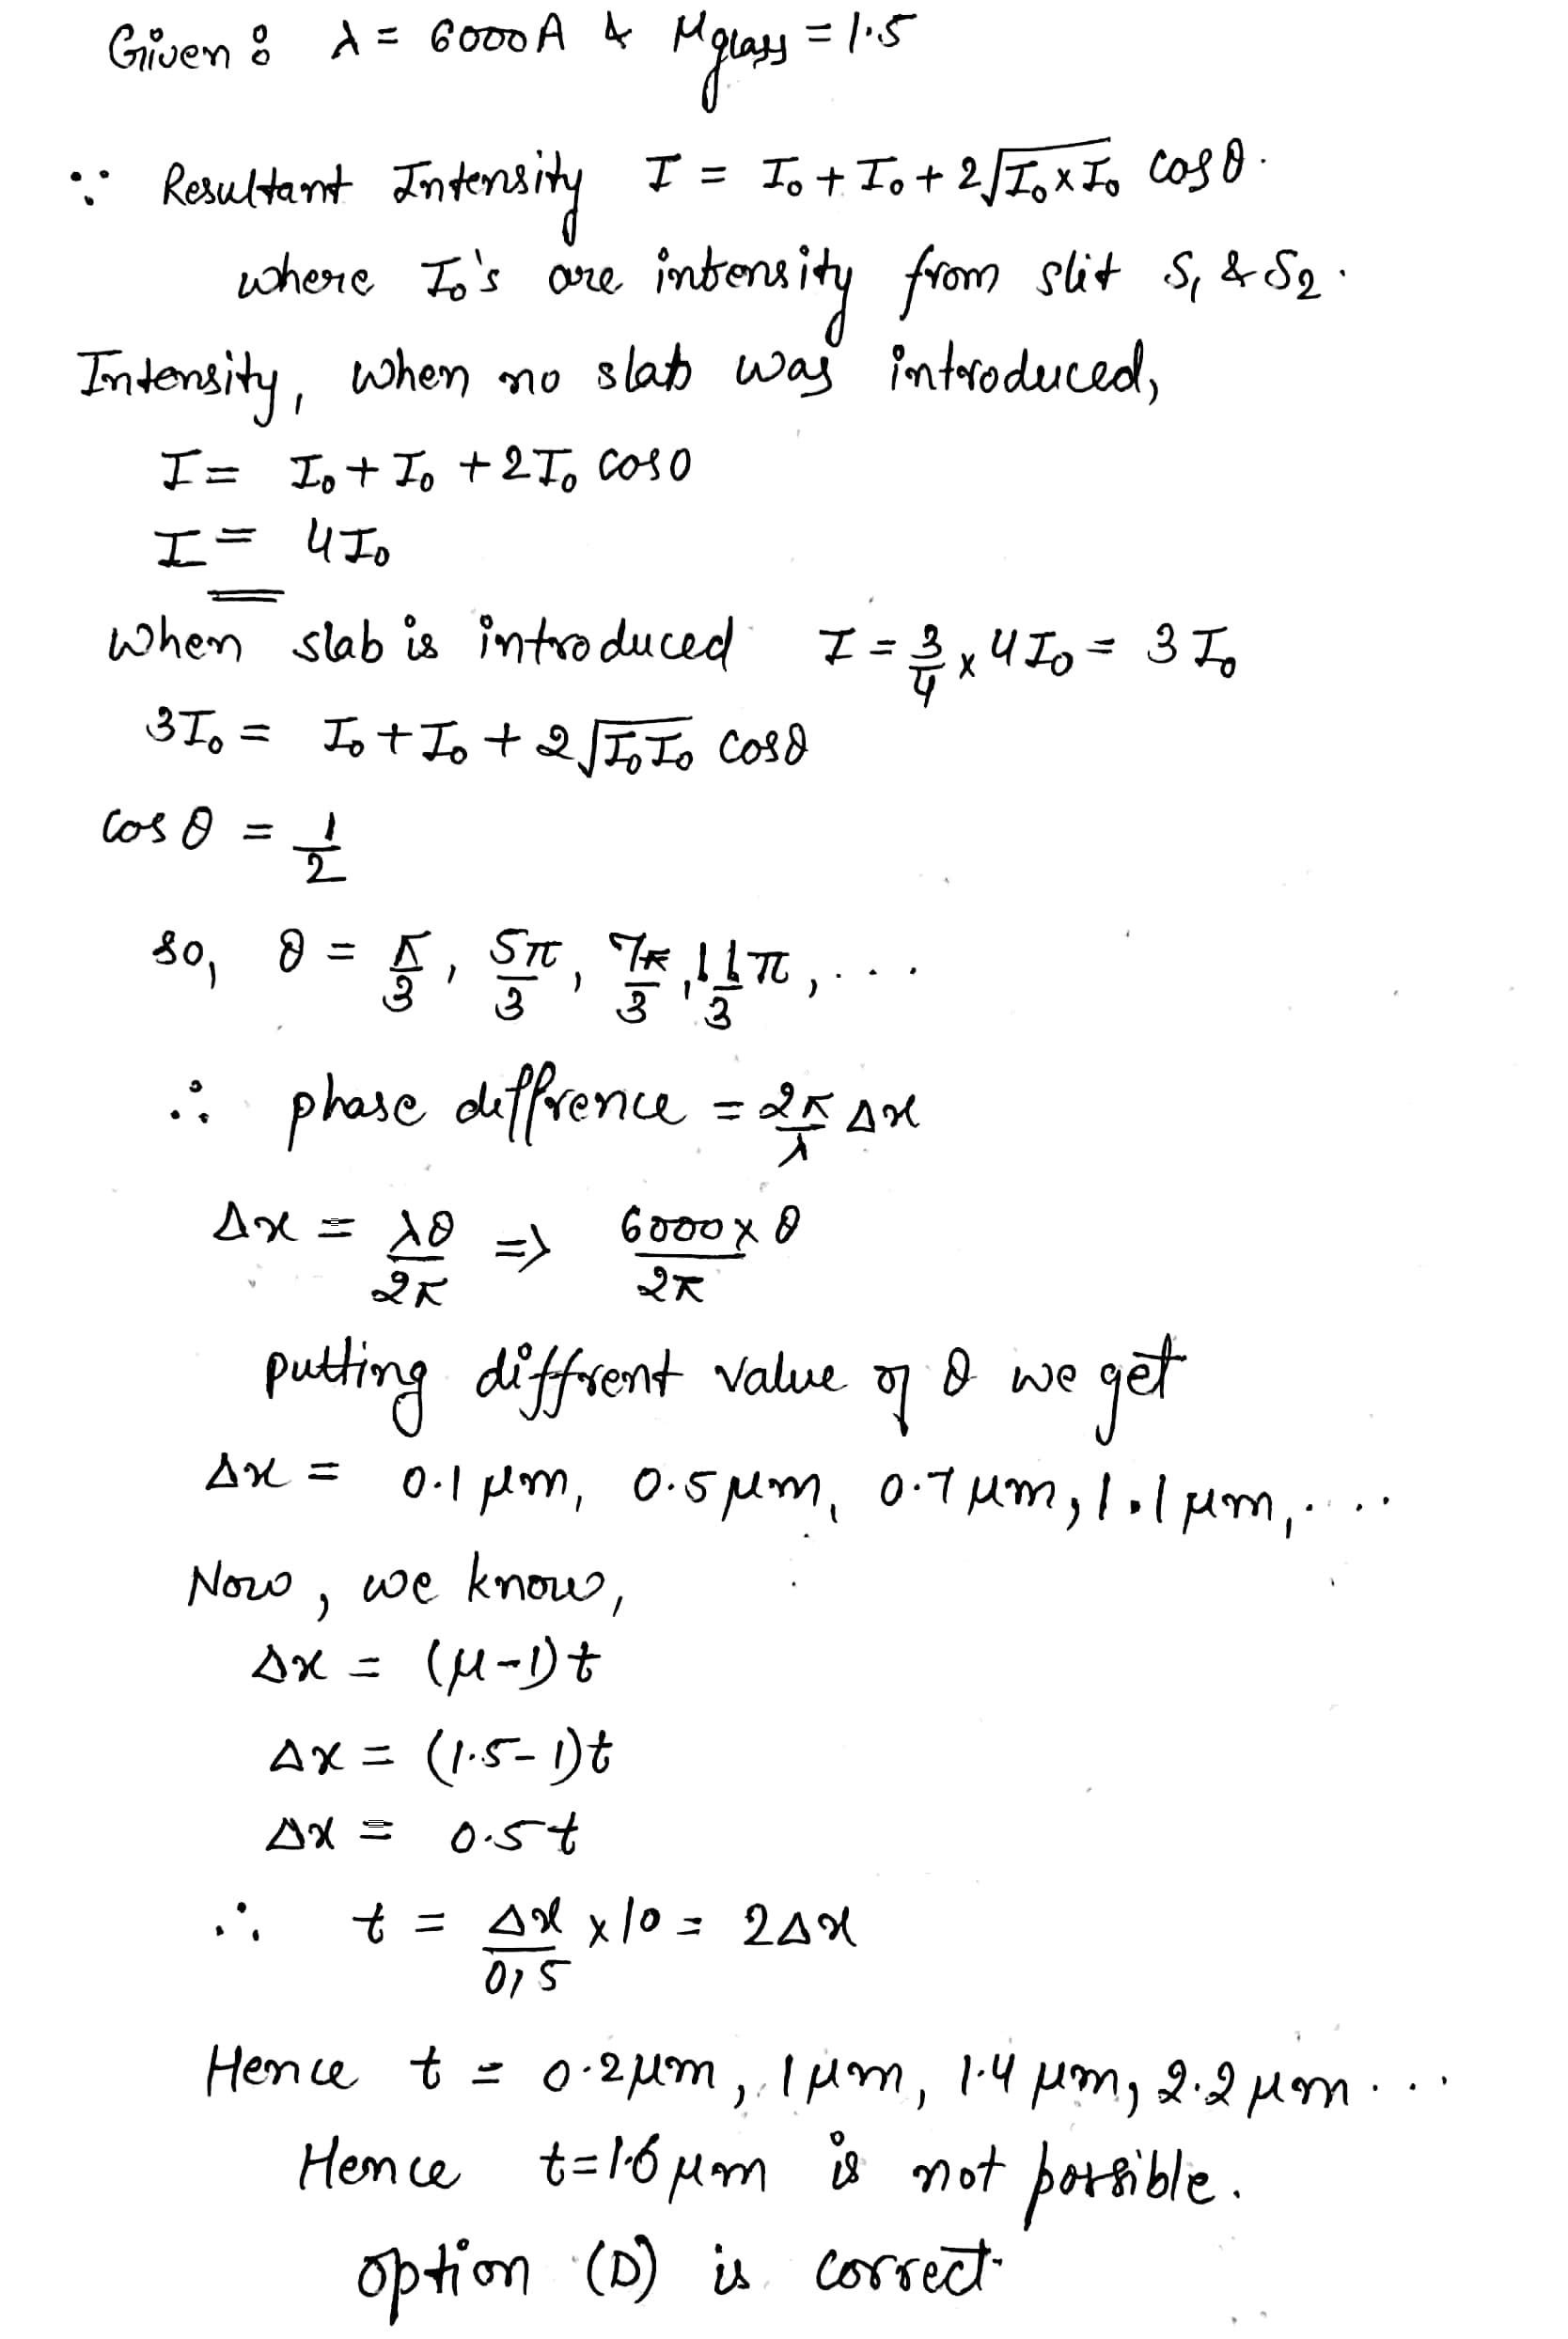 Given : λ = 6000A & μglass = 1.5
∵ Resultant Intensity I = I₀ + I₀ + 2√I₀×I₀ cosθ.
where I₀'s are intensity from slit S₁ & S₂.
Intensity, when no slab was introduced,
I = I₀ + I₀ + 2I₀ cos0
I = 4I₀
when slab is introduced I = 3/4 × 4I₀ = 3I₀
3I₀ = I₀ + I₀ + 2√I₀I₀ cosθ
cosθ = 1/2
so, θ = π/3, 5π/3, 7π/3, 11π/3, ...
∴ phase diffrence = 2π/λ Δx
Δx = λθ/2π => 6000×θ/2π
putting diffrent value of θ we get
Δx = 0.1 μm, 0.5 μm, 0.7 μm, 1.1 μm, ....
Now, we know,
Δx = (μ-1)t
Δx = (1.5-1)t
Δx = 0.5t
∴ t = Δx/0,5 × 10 = 2Δx
Hence t = 0.2μm, 1μm, 1.4 μm, 2.2 μm ...
Hence t=1.6 μm is not possible.
option (D) is correct.